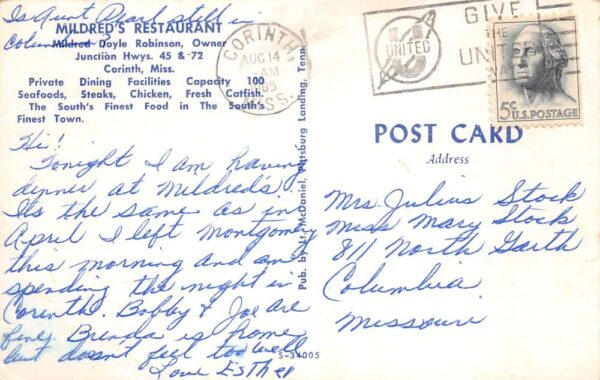 Is Aunt Pearl still in
Columbia
MILDRED'S RESTAURANT
Mildred Doyle Robinson, Owner
Junction Hwys. 45 & 72
Corinth, Miss.
Private Dining Facilities Capacity 100
Seafoods, Steaks, Chicken, Fresh Catfish.
The South's Finest Food in The South's
Finest Town.
Hi!
Tonight I am having
dinner at Mildred's.
Its the same as in
April I left Montgomery
this morning and am
spending the night in
Corinth. Bobby & Joe are
fine. Brenda is home
but doesn't feel too well
Love Esther
Pub. by McDaniel, Pittsburg Landing, Tenn.
S-34005
CORINTH,
AUG 14
AM
MISS.
GIVE
THE
UNITED
UNITED
5¢ U.S. POSTAGE
POST CARD
Address
Mrs. Julius Stock
Miss Mary Stock
811 North Garth
Columbia
Missouri